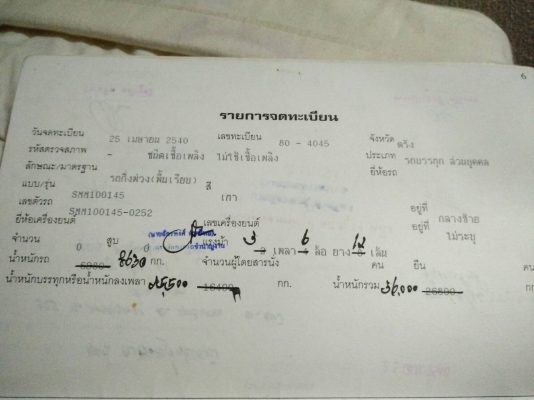 6
รายการจดทะเบียน
วันจดทะเบียน 25 เมษายน 2540 เลขทะเบียน 80 - 4045 จังหวัด ตรัง
รหัสตรวจสภาพ - ชนิดเชื้อเพลิง ไม่ใช้เชื้อเพลิง ประเภท รถบรรทุก ส่วนบุคคล
ลักษณะ/มาตรฐาน รถกึ่งพ่วง(พื้นเรียบ) ยี่ห้อรถ
แบบ/รุ่น SMM100145 สี เทา
เลขตัวรถ SMM100145-0252 อยู่ที่ กลางซ้าย
ยี่ห้อเครื่องยนต์ เลขเครื่องยนต์ อยู่ที่ ไม่ระบุ
จำนวน 0 สูบ 0 แรงม้า 3 เพลา 6 ล้อ ยาง 12 เส้น
น้ำหนักรถ 8630 กก. จำนวนผู้โดยสารนั่ง คน ยืน คน
น้ำหนักบรรทุกหรือน้ำหนักลงเพลา 25,500 16400 กก. น้ำหนักรวม 36,000 26800 กก